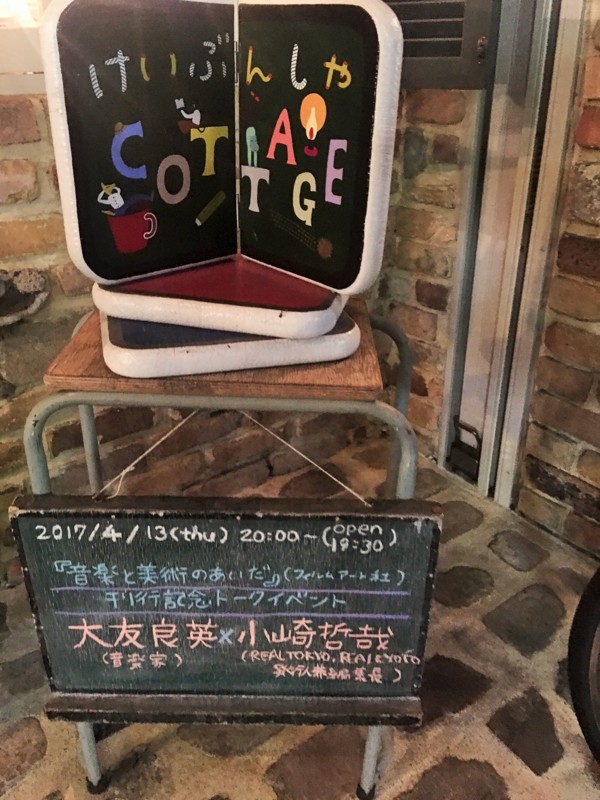 けいぶんしゃ
COTTAGE
2017/4/13(thu) 20:00〜(open 19:30)
『音楽と美術のあいだ』(フィルムアート社)
刊行記念トークイベント
大友良英×小崎哲哉
(音楽家) (REALTOKYO, REALKYOTO
発行人兼編集長)